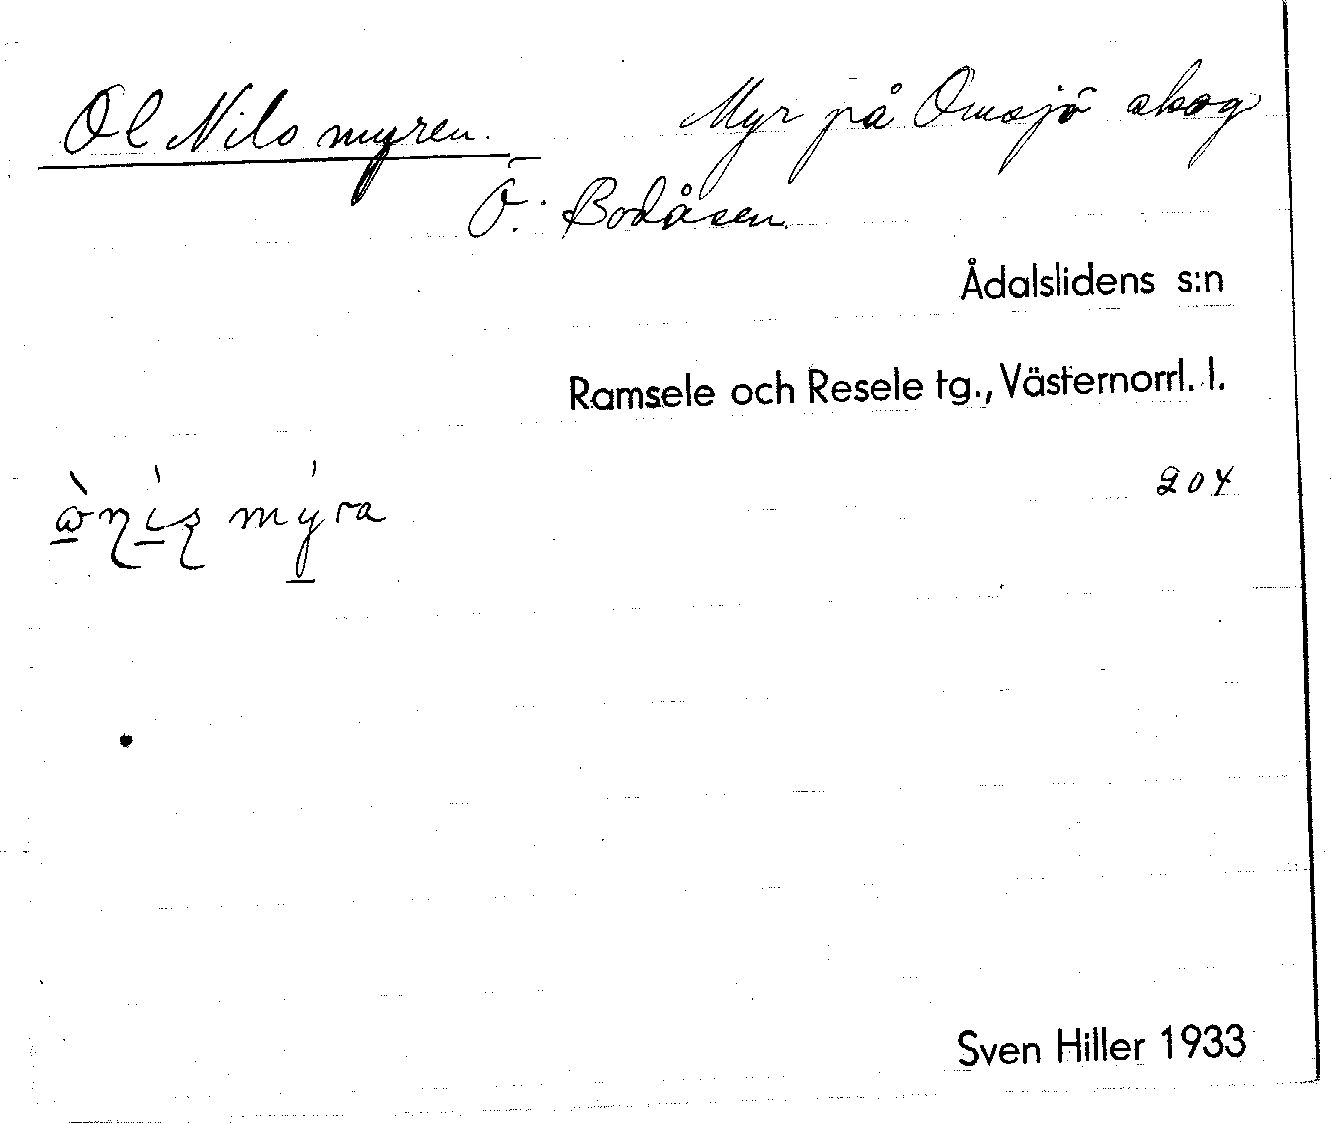 Ol Nils myren. Myr på Omsjö skog
Ö. Bodåsen.
Ådalslidens s:n
Ramsele och Resele tg., Västernorrl. l.
204
myra
Sven Hiller 1933